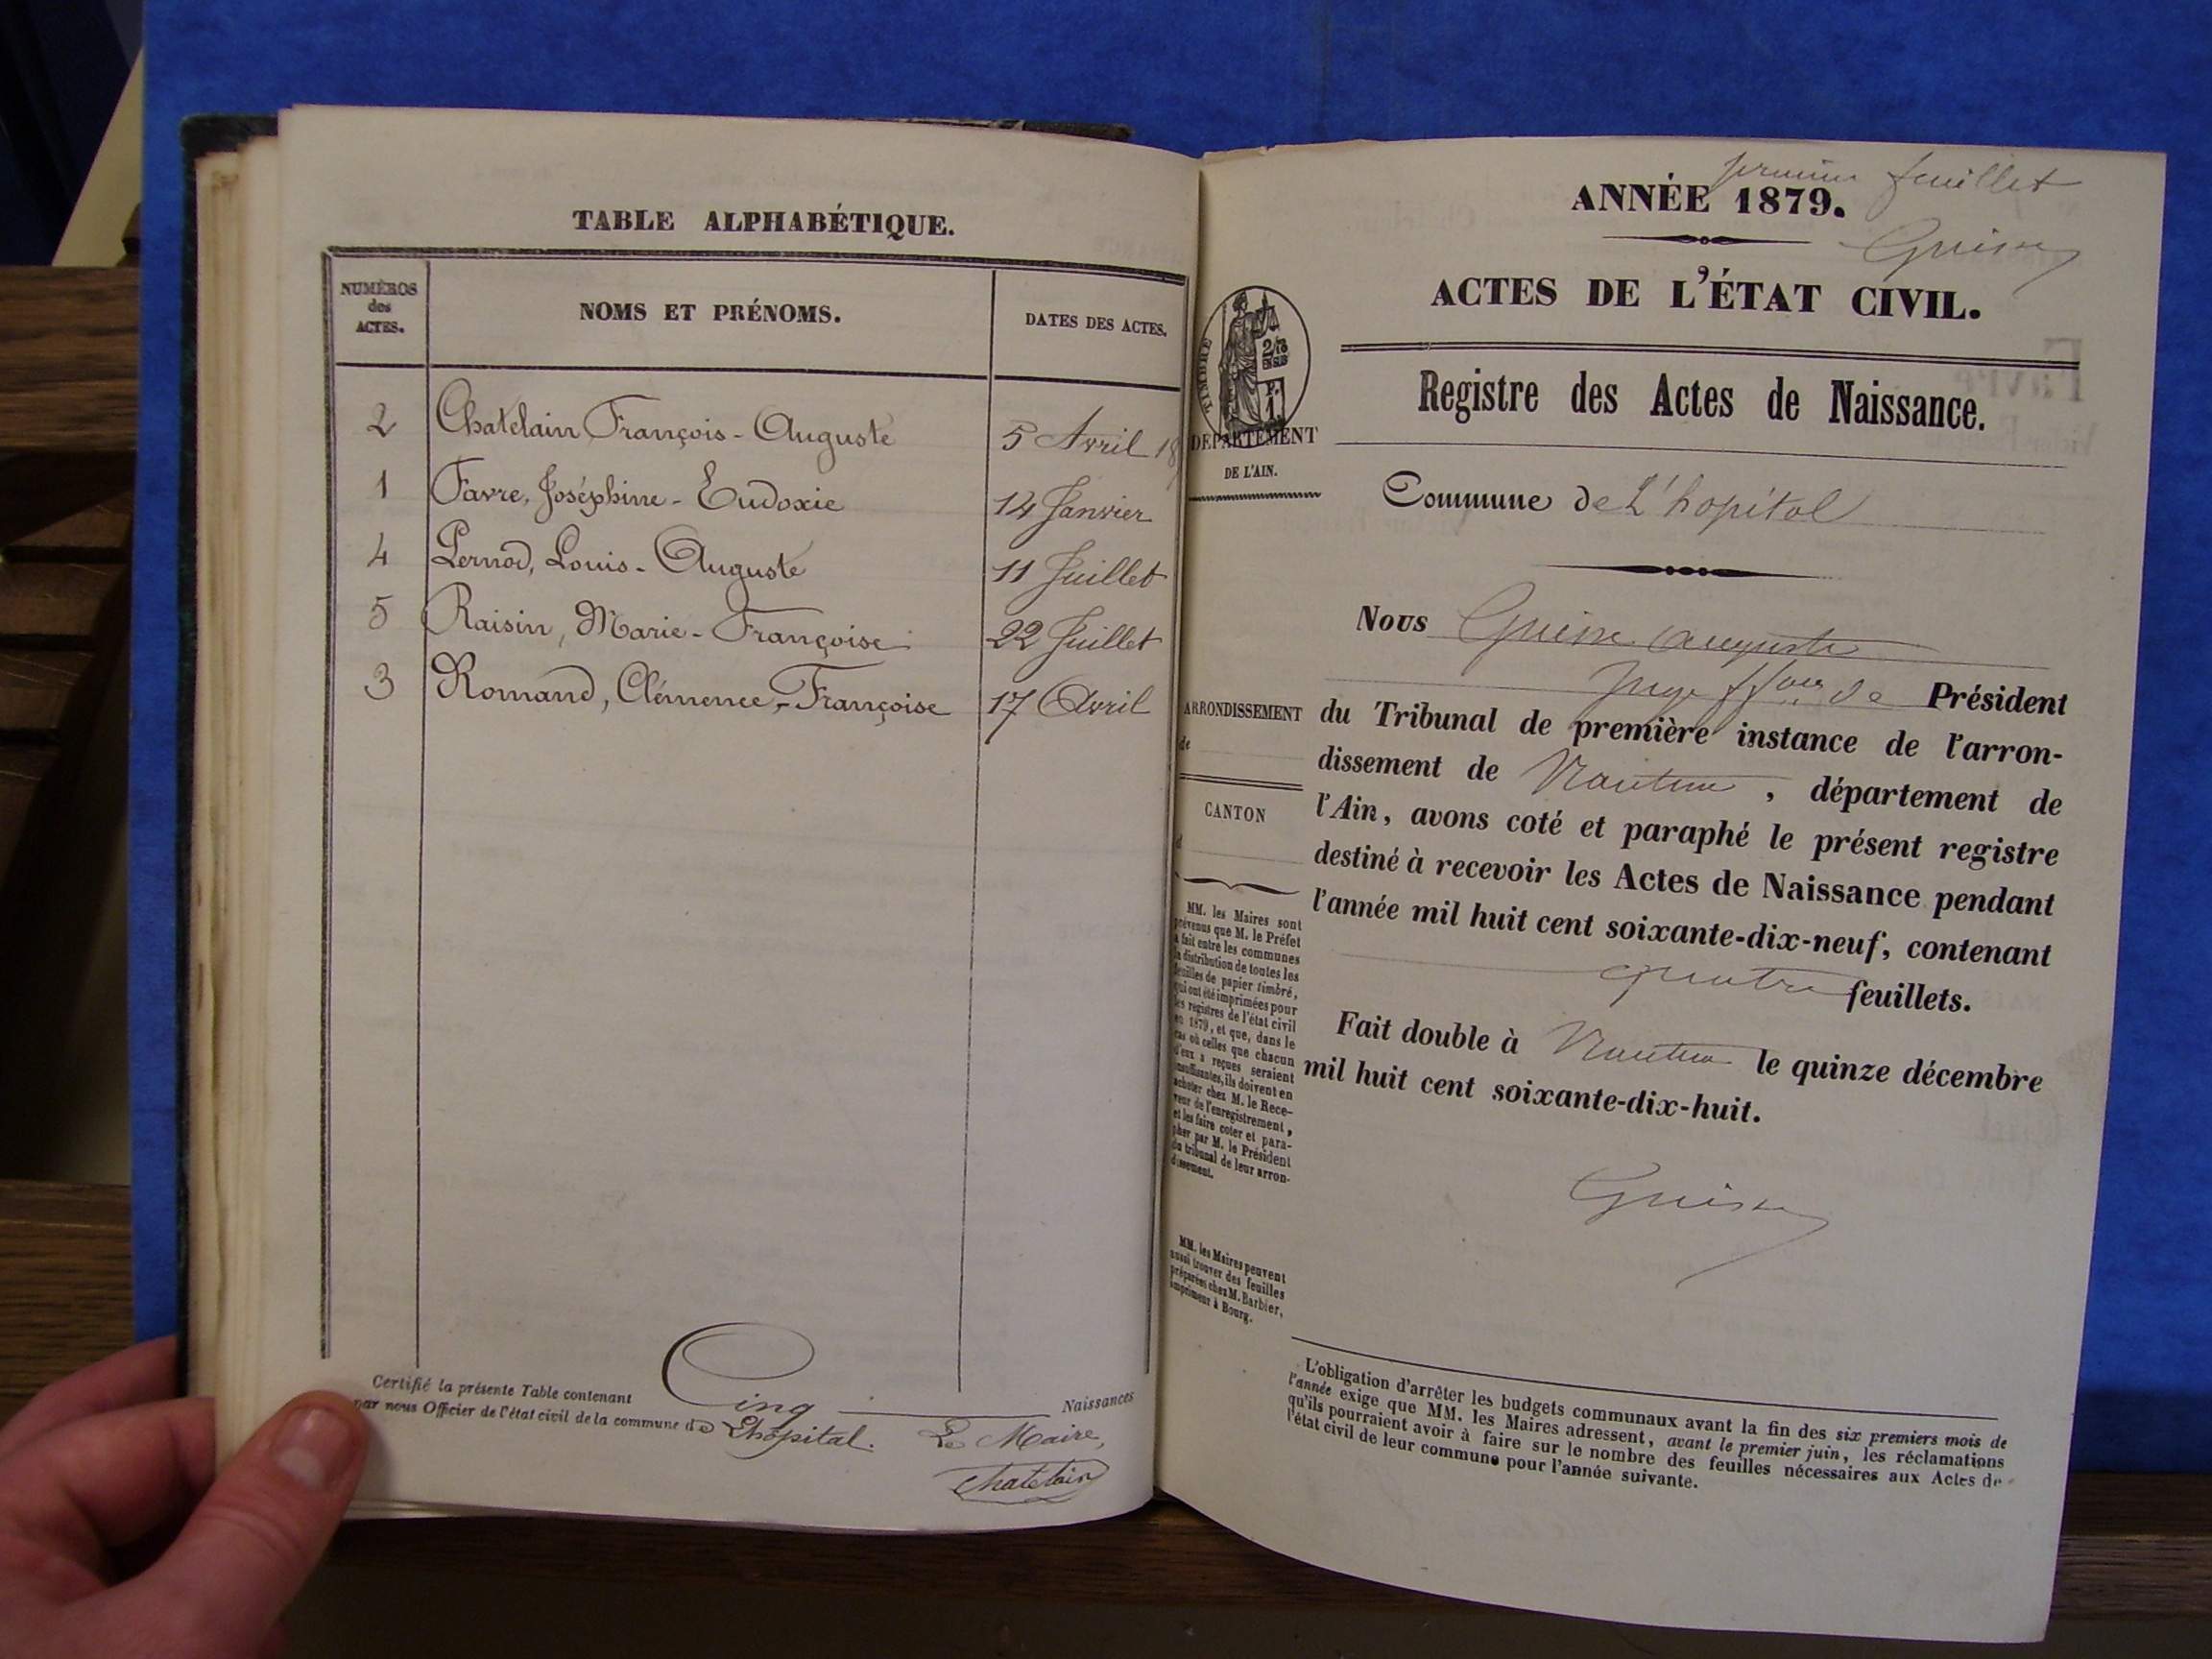 TABLE ALPHABÉTIQUE.
NUMÉROS
des
ACTES.
NOMS ET PRÉNOMS.
DATES DES ACTES.
2 Chatelain François - Auguste 5 Avril 18
1 Favre, Joséphine - Eudoxie 14 Janvier
4 Pernod, Louis - Auguste 11 Juillet
5 Raisin, Marie - Françoise 22 Juillet
3 Romand, Clémence, Françoise 17 Avril
Certifié la présente Table contenant Cinq Naissances
par nous Officier de l'état civil de la commune de Lhopital.
Le Maire,
Chatelain
premier feuillet
ANNÉE 1879.
Guisse
ACTES DE L'ÉTAT CIVIL.
Registre des Actes de Naissance.
TIMBRE
DÉPARTEMENT
DE L'AIN.
Commune de L'hopital
Nous auguste
Juge ffons de Président
du Tribunal de première instance de l'arron-
dissement de Nantua, département de
l'Ain, avons coté et paraphé le présent registre
destiné à recevoir les Actes de Naissance pendant
l'année mil huit cent soixante-dix-neuf, contenant
quatre feuillets.
Fait double à Nantua le quinze décembre
mil huit cent soixante-dix-huit.
ARRONDISSEMENT
de
CANTON
d
MM. les Maires sont
prévenus que M. le Préfet
a fait entre les communes
la distribution de toutes les
feuilles de papier timbré,
qui ont été imprimées pour
les registres de l'état civil
en 1879, et que, dans le
cas où celles que chacun
d'eux a reçues seraient
insuffisantes, ils doivent en
acheter chez M. le Rece-
veur de l'enregistrement,
et les faire coter et para-
pher par M. le Président
du tribunal de leur arron-
dissement.
MM. les Maires peuvent
aussi trouver des feuilles
préparées chez M. Barbier,
imprimeur à Bourg.
L'obligation d'arrêter les budgets communaux avant la fin des six premiers mois de
l'année exige que MM. les Maires adressent, avant le premier juin, les réclamations
qu'ils pourraient avoir à faire sur le nombre des feuilles nécessaires aux Actes de
l'état civil de leur commune pour l'année suivante.